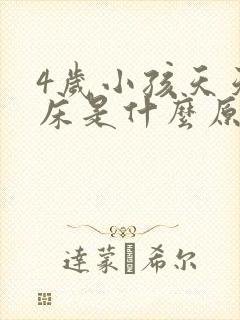 4歲小孩天天
床是什麼原
達蒙希尔